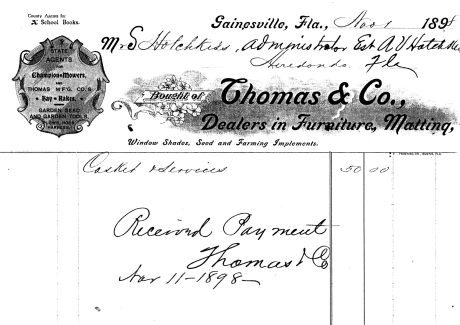 County Agents for
X School Books.
Gainesville, Fla., Nov 1 1898
Mr S Hotchkiss, Administrator Est A V Hotchkiss
Arredondo, Fla
STATE
AGENTS
FOR
Champion Mowers,
AND
THOMAS M'F'G. CO.'S
Hay Rakes,
GARDEN SEED
AND GARDEN TOOLS,
PLOWS, HOES,
HARNESS.
Bought of Thomas & Co.,
Dealers in Furniture, Matting,
Window Shades, Seed and Farming Implements.
Casket & Services 50 00
Received Payment
Thomas & Co
Nov 11-1898